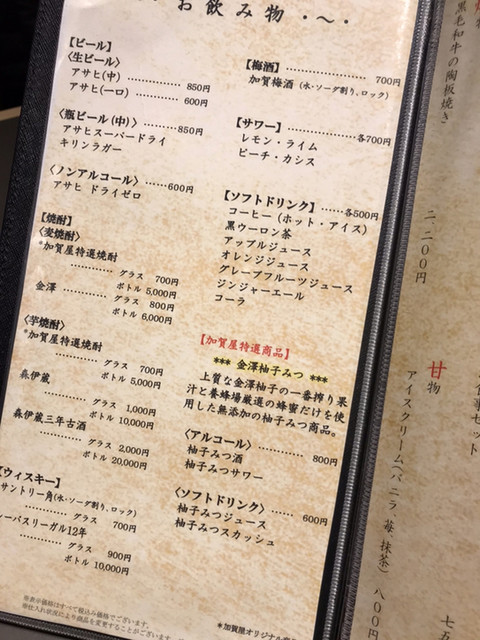 お飲み物 ・～・
【ビール】
〈生ビール〉
アサヒ(中) ………… 850円
アサヒ(一口) ……… 600円
〈瓶ビール(中)〉 ………850円
アサヒスーパードライ
キリンラガー
〈ノンアルコール〉 ……600円
アサヒ ドライゼロ
【焼酎】
〈麦焼酎〉
*加賀屋特選焼酎
………… グラス 700円
ボトル 5,000円
金澤 ………… グラス 800円
ボトル 6,000円
〈芋焼酎〉
*加賀屋特選焼酎
………… グラス 700円
ボトル 5,000円
森伊蔵
………… グラス 1,000円
ボトル 10,000円
森伊蔵三年古酒
………… グラス 2,000円
ボトル 20,000円
【ウィスキー】
サントリー角(水・ソーダ割り、ロック)
………… グラス 700円
ーバスリーガル12年
………… グラス 900円
ボトル 10,000円
【梅酒】 ………… 700円
加賀梅酒 (水・ソーダ割り、ロック)
【サワー】 …………各700円
レモン・ライム
ピーチ・カシス
【ソフトドリンク】 ……各500円
コーヒー(ホット・アイス)
黒ウーロン茶
アップルジュース
オレンジジュース
グレープフルーツジュース
ジンジャーエール
コーラ
【加賀屋特選商品】
*** 金澤柚子みつ ***
上質な金澤柚子の一番搾り果
汁と養蜂場厳選の蜂蜜だけを使
用した無添加の柚子みつ商品。
〈アルコール〉 ………… 800円
柚子みつ酒
柚子みつサワー
〈ソフトドリンク〉 ……… 600円
柚子みつジュース
柚子みつスカッシュ
表示価格はすべて税込み価格でございます。
仕入れ状況により商品を変更することがございます。
*加賀屋オリジナル商
黒毛和牛の陶板焼き
二、二〇〇円
食事セット
七五
甘物
アイスクリーム(バニラ、苺、抹茶) 八〇〇円